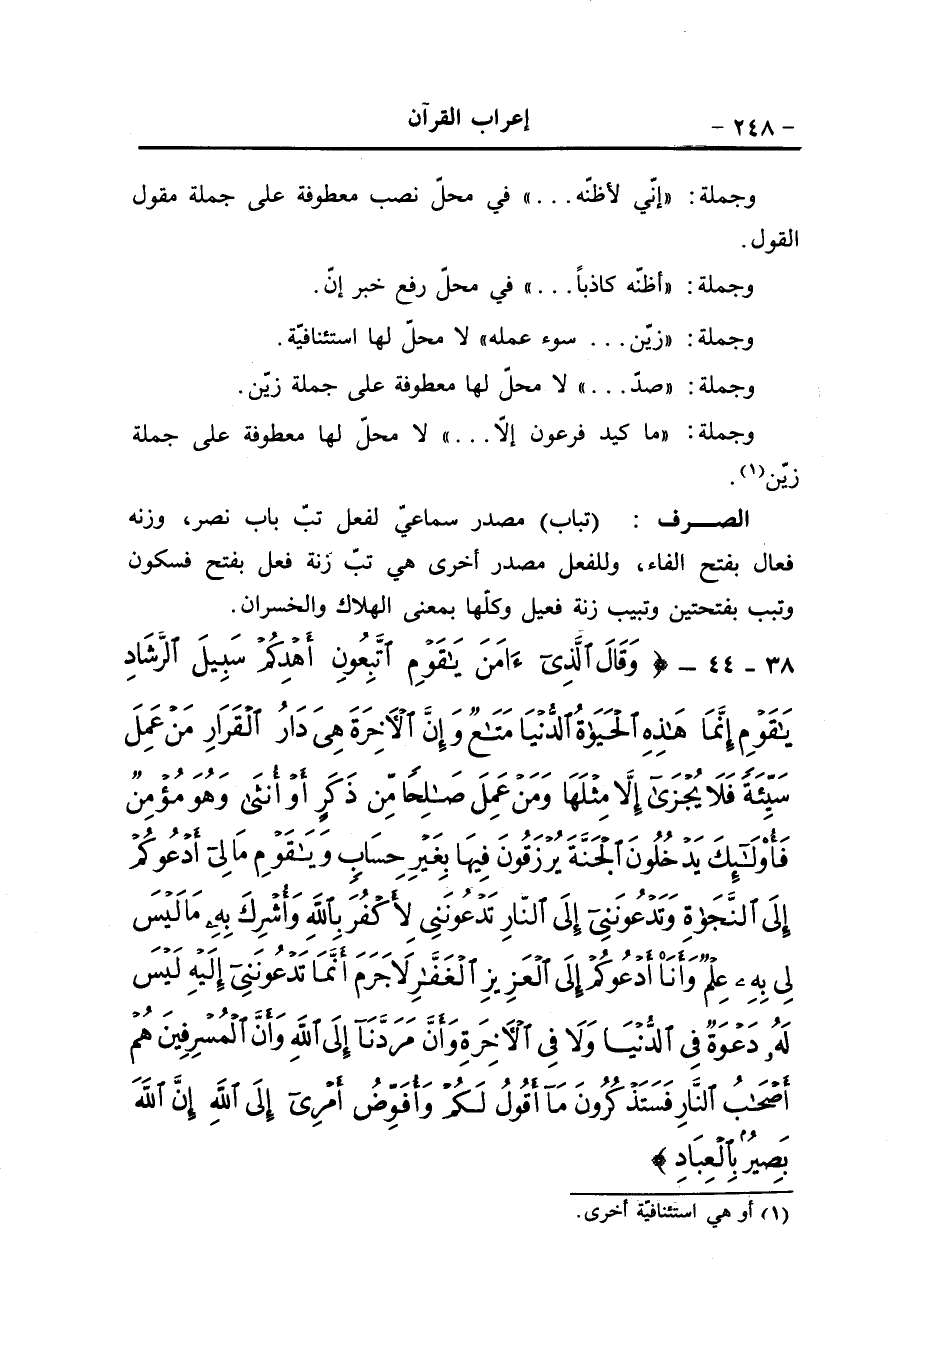 - ٢٤٨ - إعراب القرآن
وجملة: «إنّي لأظنّه...» في محلّ نصب معطوفة على جملة مقول
القول.
وجملة: «أظنّه كاذباً...» في محلّ رفع خبر إنّ.
وجملة: «زيّن... سوء عمله» لا محلّ لها استئنافيّة.
وجملة: «صدّ...» لا محلّ لها معطوفة على جملة زيّن.
وجملة: «ما كيد فرعون إلّا...» لا محلّ لها معطوفة على جملة
زيّن(١).
الصـــرف : (تباب) مصدر سماعيّ لفعل تبّ باب نصر، وزنه
فعال بفتح الفاء، وللفعل مصدر أخرى هي تبّ زنة فعل بفتح فسكون
وتبب بفتحتين وتبيب زنة فعيل وكلّها بمعنى الهلاك والخسران.
٣٨ - ٤٤ - ﴿ وَقَالَ ٱلَّذِىٓ ءَامَنَ يَٰقَوْمِ ٱتَّبِعُونِ أَهْدِكُمْ سَبِيلَ ٱلرَّشَادِ
يَٰقَوْمِ إِنَّمَا هَٰذِهِ ٱلْحَيَوٰةُ ٱلدُّنْيَا مَتَٰعٌ وَإِنَّ ٱلْءَاخِرَةَ هِىَ دَارُ ٱلْقَرَارِ مَنْ عَمِلَ
سَيِّئَةً فَلَا يُجْزَىٰٓ إِلَّا مِثْلَهَا وَمَنْ عَمِلَ صَٰلِحًا مِّن ذَكَرٍ أَوْ أُنثَىٰ وَهُوَ مُؤْمِنٌ
فَأُو۟لَٰٓئِكَ يَدْخُلُونَ ٱلْجَنَّةَ يُرْزَقُونَ فِيهَا بِغَيْرِ حِسَابٍ وَيَٰقَوْمِ مَا لِىٓ أَدْعُوكُمْ
إِلَى ٱلنَّجَوٰةِ وَتَدْعُونَنِىٓ إِلَى ٱلنَّارِ تَدْعُونَنِى لِأَكْفُرَ بِٱللَّهِ وَأُشْرِكَ بِهِۦ مَا لَيْسَ
لِى بِهِۦ عِلْمٌ وَأَنَا۠ أَدْعُوكُمْ إِلَى ٱلْعَزِيزِ ٱلْغَفَّٰرِ لَا جَرَمَ أَنَّمَا تَدْعُونَنِىٓ إِلَيْهِ لَيْسَ
لَهُۥ دَعْوَةٌ فِى ٱلدُّنْيَا وَلَا فِى ٱلْءَاخِرَةِ وَأَنَّ مَرَدَّنَآ إِلَى ٱللَّهِ وَأَنَّ ٱلْمُسْرِفِينَ هُمْ
أَصْحَٰبُ ٱلنَّارِ فَسَتَذْكُرُونَ مَآ أَقُولُ لَكُمْ وَأُفَوِّضُ أَمْرِىٓ إِلَى ٱللَّهِ إِنَّ ٱللَّهَ
بَصِيرٌۢ بِٱلْعِبَادِ ﴾
(١) أو هي استئنافيّة أخرى.